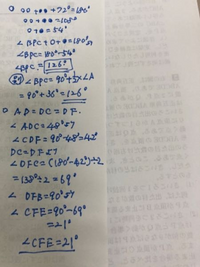 ① ○○+●●+72°=180°
○○+●●=108°
○+●=54°
∠BPC+○+●=180°より
∠BPC=180°-54°
∠BPC=126°
∠BPC=90°+½×∠A
=90°+36°=126°
② AD=DC=DF.
∠ADC=48°より
∠CDF=90°-48°=42°
DC=DFより
∠DFC=(180°-42°)÷2
=138°÷2=69°
∠DFB=90°より
∠CFE=90°-69°
=21°
∠CFE=21°